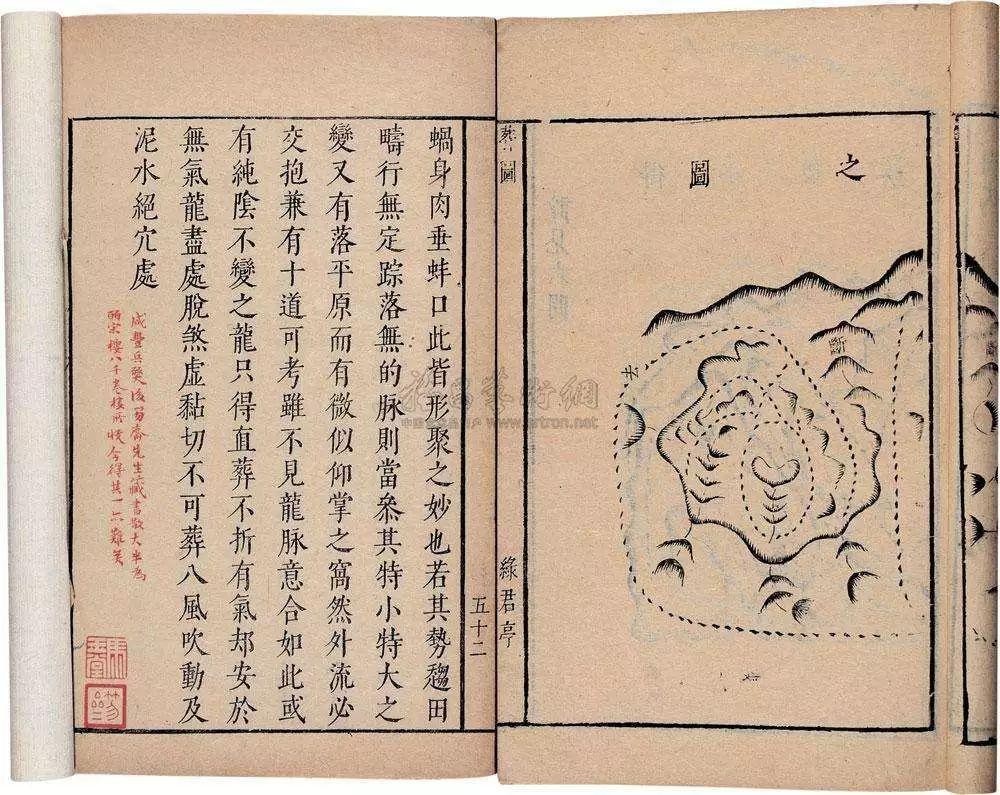 之
圖
斷
去
葬圖
綠君亭
五十二
蝸身肉垂蚌口此皆形聚之妙也若其勢趨田
疇行無定踪落無的脉則當叅其特小特大之
變又有落平原而有微似仰掌之窩然外流必
交抱兼有十道可考雖不見龍脉意合如此或
有純陰不變之龍只得直葬不折有氣却安於
無氣龍盡處脫煞虛黏切不可葬八風吹動及
泥水絕穴處
咸豐兵燹後芴齋先生藏書散大半為
皕宋樓八千卷樓所收今得其一亦難矣
www.artron.net